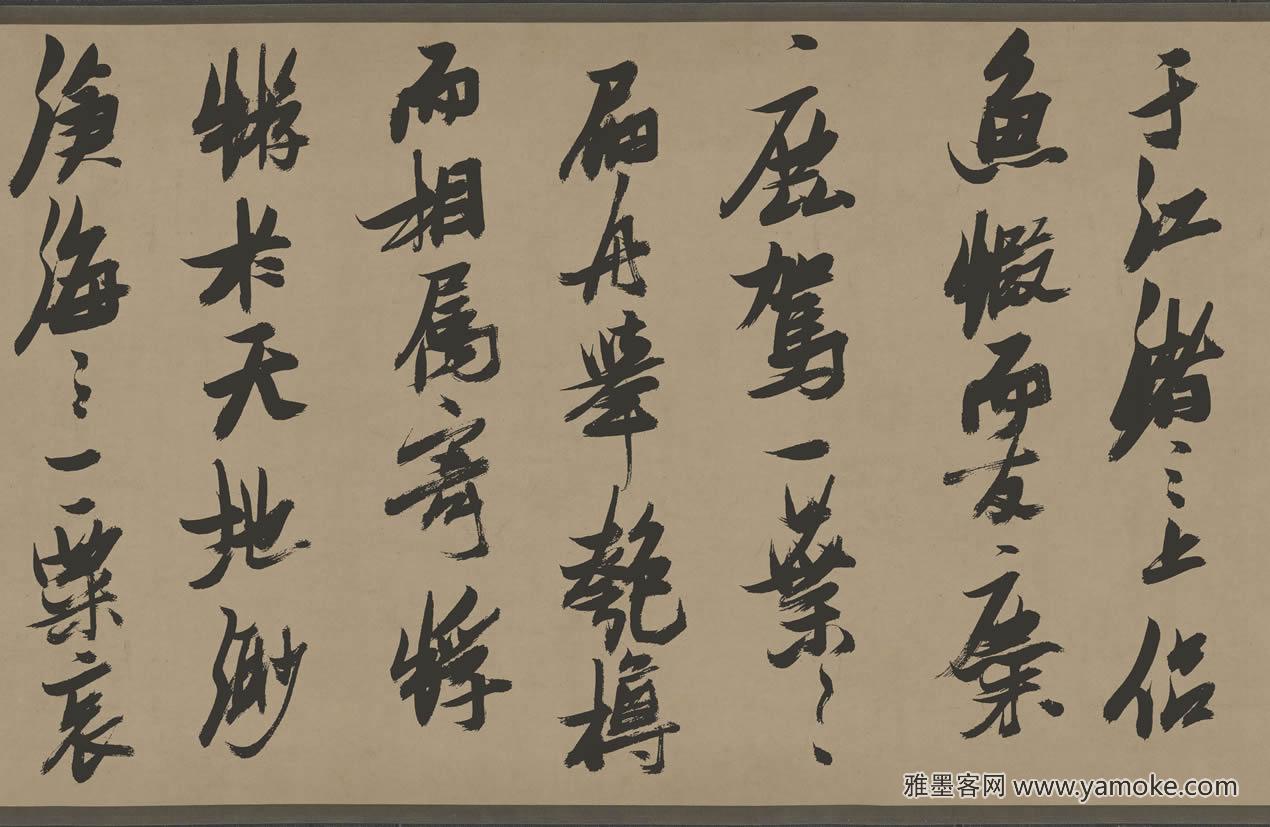 于江渚之上侣
魚蝦而友麋
鹿駕一葉之
扁舟舉匏樽
而相属寄蜉
蝣於天地渺
滄海之一粟哀
雅墨客网 www.yamoke.com